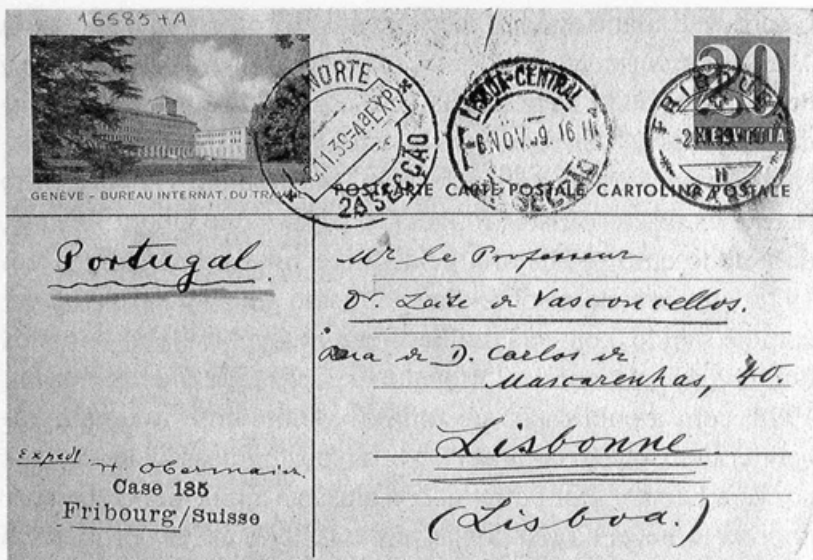 16585+A
20
HELVETIA
LISBOA-CENTRAL
6 NOV. 9. 16 H
2ª SECÇÃO
GENÈVE – BUREAU INTERNAT. DU TRAVAIL
POSTKARTE CARTE POSTALE CARTOLINA POSTALE
Portugal
Mr le Professeur
Dr. Leite de Vasconcellos.
Rua de D. Carlos de
Mascarenhas, 40.
Lisbonne
(Lisboa.)
Expedt. H. Obermaier
Case 185
Fribourg/Suisse